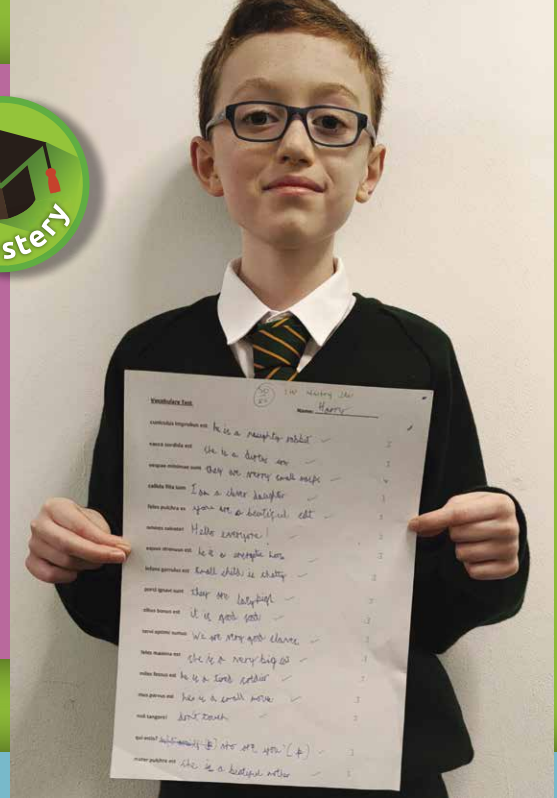 stery
50
Vocabulary Test
Name: Harry
cuniculus improbus est he is a naughty rabbit 3
vacca sordida est she is a dirty cow 3
vespae minimae sunt they are very small wasps 4
callida filia sum I am a clever daughter 3
feles pulchra es you are a beatiful cat 3
omnes salvete! Hello everyone! 2
equus strenuus est he is a energetic horse 3
infans garrulus est small child is chatty 3
porci ignavi sunt they are lazy pigs 3
cibus bonus est it is good food 3
servi optimi sumus We are very good slaves 3
feles maxima est she is a very big cat 3
miles bonus est he is a good soldier 3
mus parvus est he is a small mouse 3
noli tangere! don't touch 2
qui estis? who are you (p) 3
mater pulchra est she is a beatiful mother 3